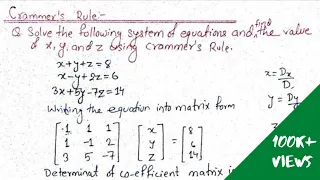 Crammer's Rule:-
Q. Solve the following system of equations and find the value
of x, y, and z using Crammer's Rule.
x+y+z=8
x-y+2z=6
3x+5y-7z=14
Writing the equation into matrix form
[-1 1 1] [x] [8]
[1 -1 2] [y] = [6]
[3 5 -7] [z] [14]
Determinat of co-efficient matrix
x = Dx/D
y = Dy
100K+
VIEWS